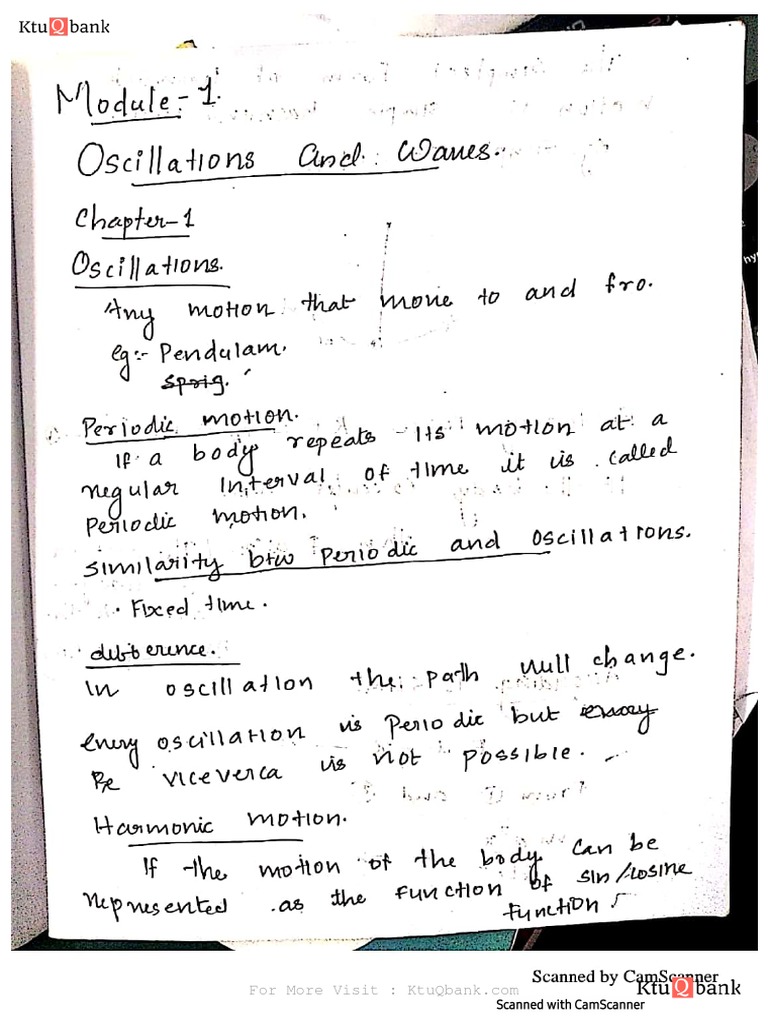 KtuQbank
Module-1.
Oscillations and waves.
Chapter-1
Oscillations.
Any motion that move to and fro.
eg:- Pendulam.
sprig.
Periodic motion.
If a body repeats its motion at a
regular interval of time it is called
Periodic motion.
similarity btw Periodic and oscillations.
. Fixed time.
difference.
In oscillation the path will change.
every oscillation is Periodic but
viceverca is not possible.
Harmonic motion.
If the motion of the body can be
represented as the function of sin/cosine
function
Scanned by CamScanner
KtuQbank
For More Visit : KtuQbank.com
Scanned with CamScanner